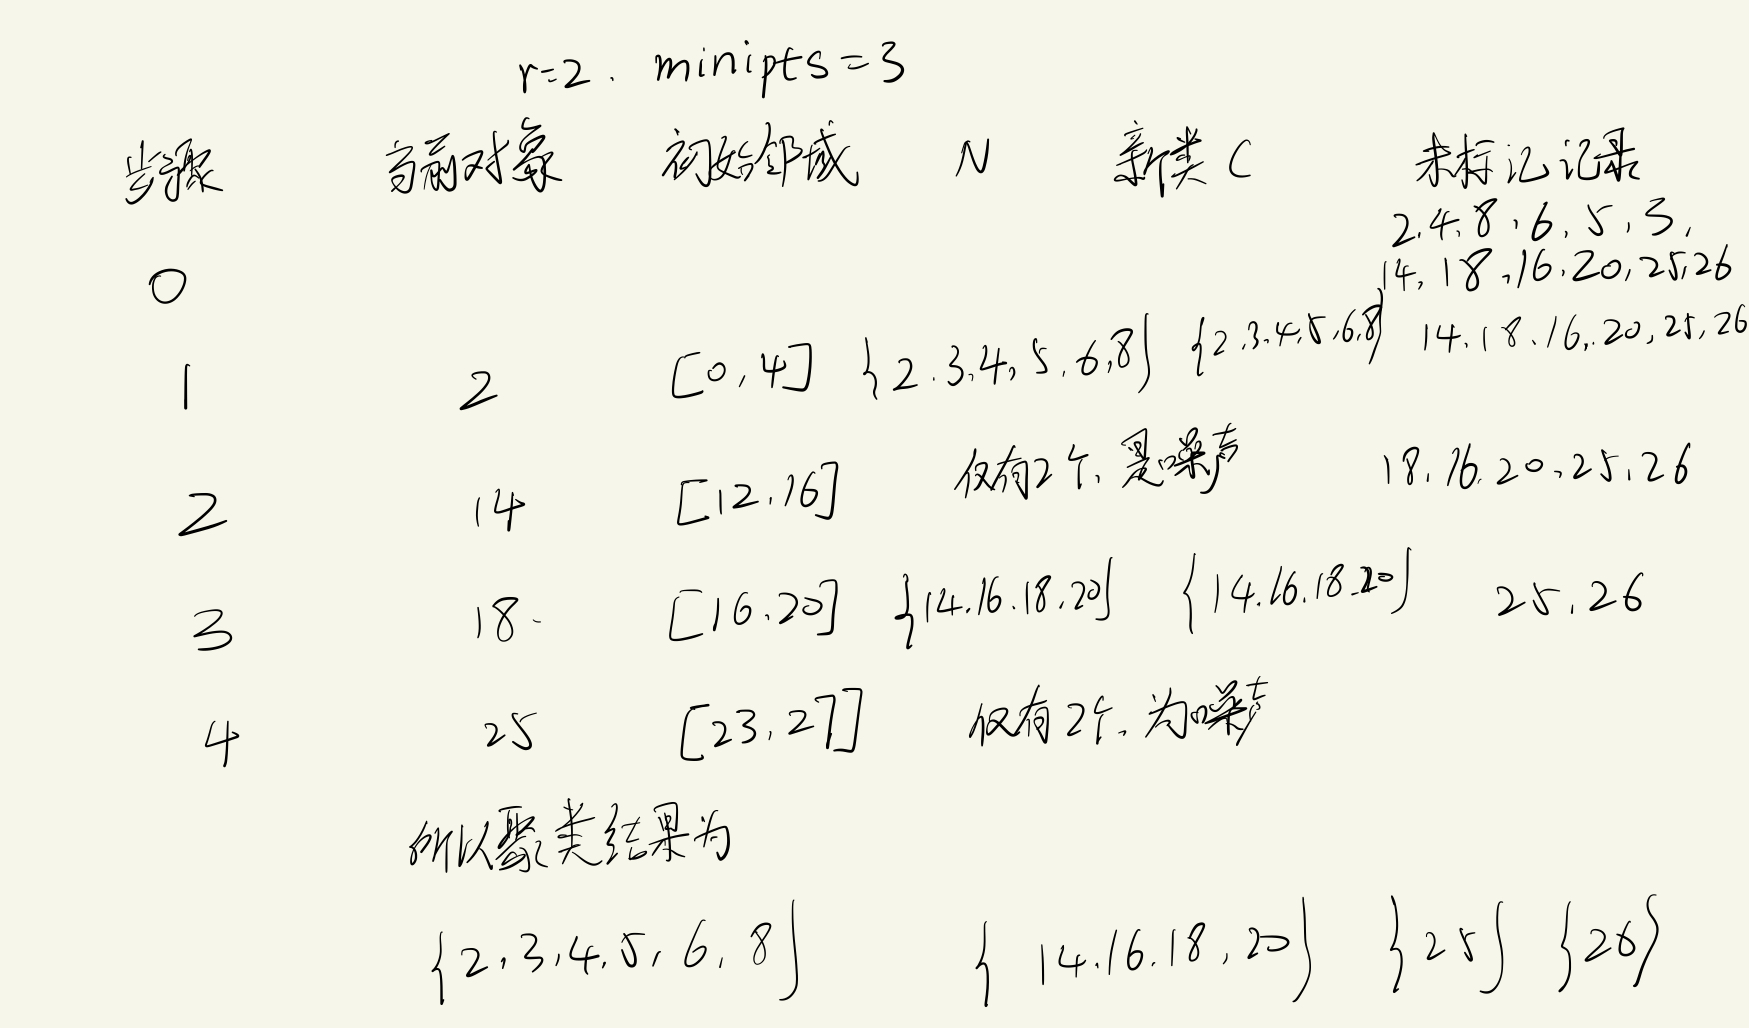 r=2. minipts=3
步骤 当前对象 初始邻域 N 新类C 未标记记录
0 2.4.8.6.5.3,
14,18,16.20,25,26
1 2 [0,4] {2.3.4,5.6,8} {2.3.4.5,6,8} 14.18.16,.20,25,26
2 14 [12.16] 仅有2个,是噪声 18.16.20,25.26
3 18. [16.20] {14.16.18.20} {14.16.18.20} 25.26
4 25 [23,27] 仅有2个,为噪声
所以聚类结果为
{2,3,4,5,6,8} {14.16.18,20} {25} {26}